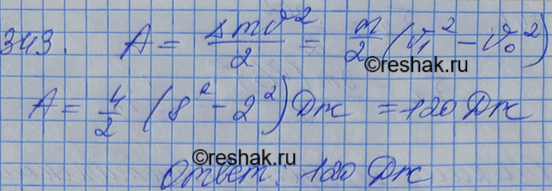 343. A = Δmv²/2 = m/2 (v₁² - v₀²)
©reshak.ru
A = 4/2 (8² - 2²) Дж = 120 Дж
©reshak.ru
Ответ: 120 Дж